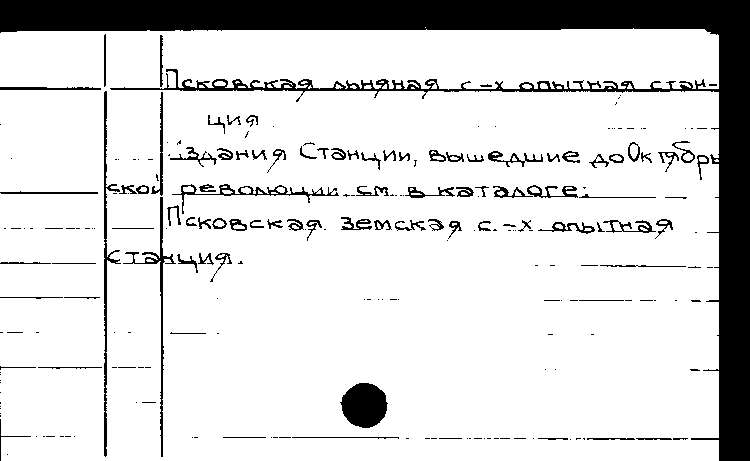 Псковская льняная с-х опытная стан-
ция
Издания Станции, вышедшие до Октябрь
ской революции см. в каталоге:
Псковская земская с.-х опытная
станция.